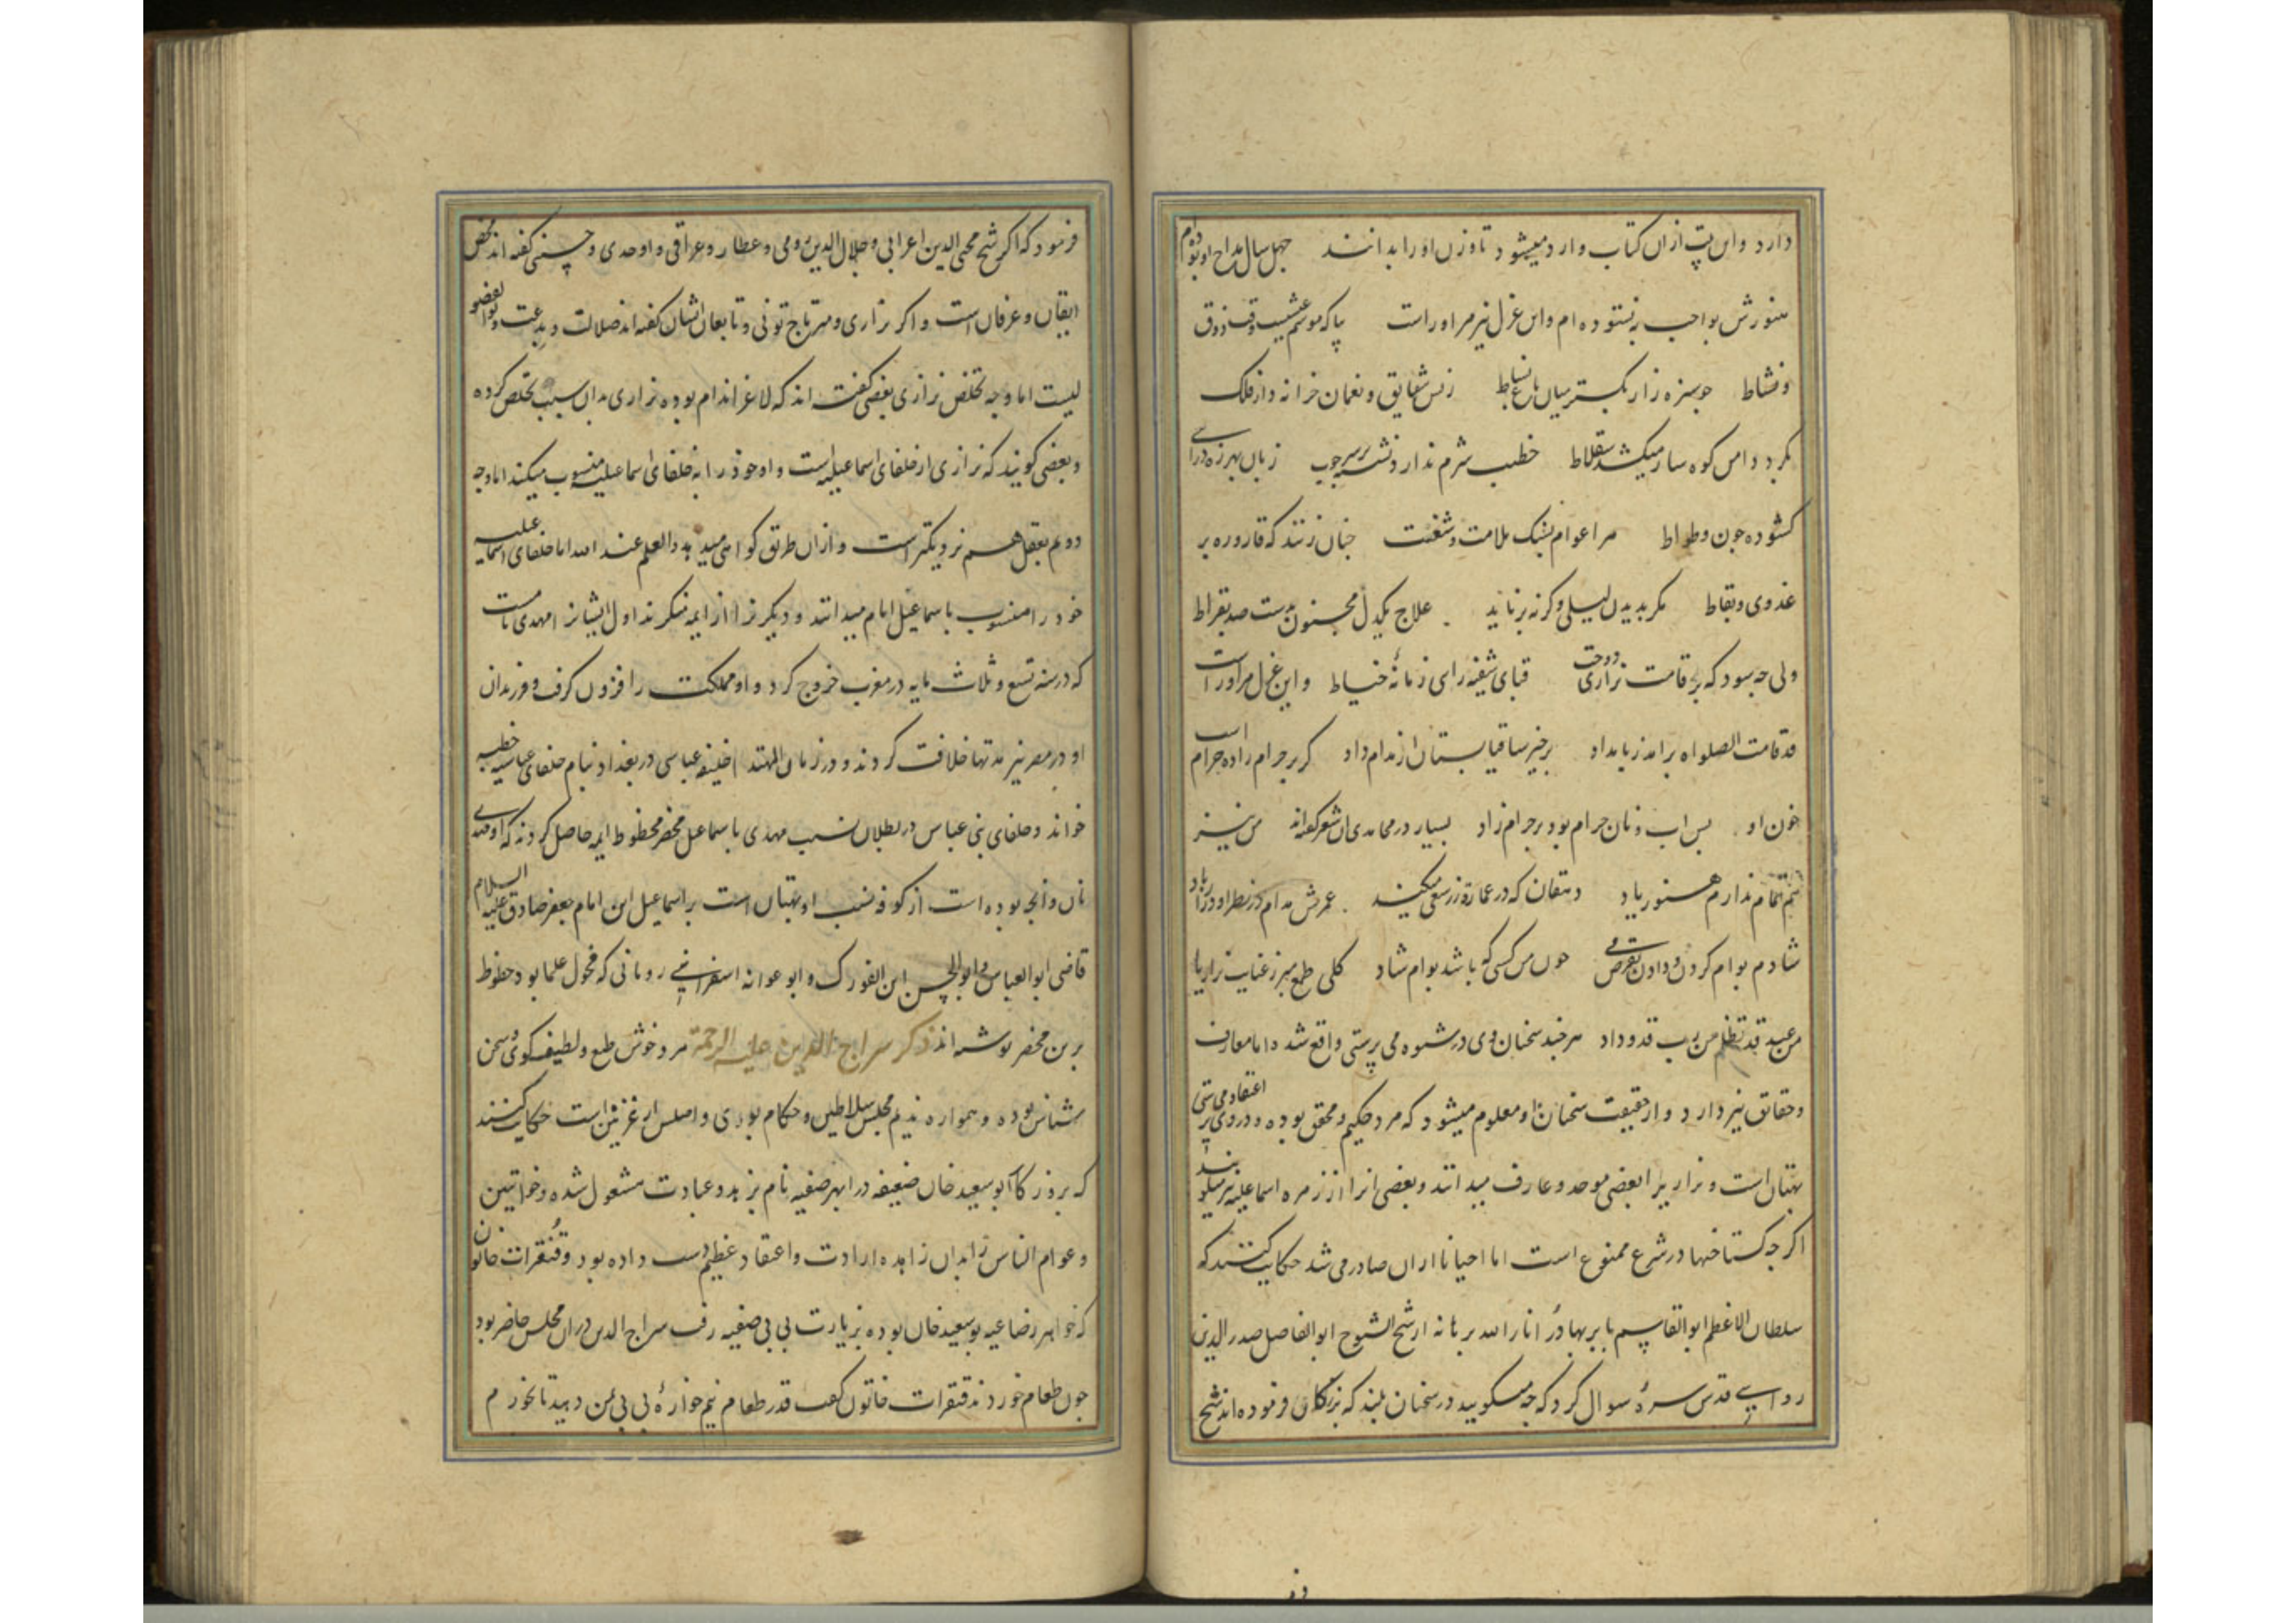 دارد و این بیت ازان کتاب وارد میشود تا وزن او را بدانند چهل سال مداح او بوده ام
هنوزش بواجب نستوده ام و این غزل نیز مر او راست بیا که موسم عیشست وقت ذوق
و نشاط چو سبزه زار بگستر میان باغ بساط زبس شقایق و نعمان خزانه دار فلک
بگرد دامن کوهسار میکشد سقلاط خطیب شرم ندارد نشسته بر سر چوب زبان بهرزه درایی
کشوده چون وطواط مرا عوام بسنک ملامت و شنعت چنان زنند که قاروره بر
عدوی و نفاط مکر بدیدن لیلی و کرنه برناید علاج یکدل مجنون بدست صد بقراط
ولی چه سود که بر قامت نزاری دوخت قبای شیفته رایی زمانهٔ خیاط و این غزل مر او راست
قد قامت الصلواه برامد ز بامداد برخیز ساقیا بستان از ندام داد کر بر حرام زاده حرام است
خون او بس اب و نان حرام بود بر حرام زاد بسیار در محامدی ان شعر کفته اند من نیز
نیم تمام ندارم هنوز یاد دهقان که در عمارة رز سعی میکند عمرش مدام در نظر او دراز باد
شادم بوام کردن و دادن بقرض می چون من کسی که باشد بوام شاد کلی طمع مبر ز عنایت نزاریا
من عبید قد تظلم من رب قد وداد هر چند سخنان وی در شیوه می پرستی واقع شده اما معارف
و حقائق نیز دارد و از حقیقت سخنان او معلوم میشود که مرد حکیم و محقق بوده و در وی اعتقاد می پرستی
بهتان است و نزاریرا بعضی موحد و عارف میدانند و بعضی انرا از زمره اسماعیلیه میکویند
اکرچه کستاخیها در شرع ممنوع است اما احیانا ازان صادر می شد حکایت کنند که
سلطان الاعظم ابوالقاسم بابر بهادر انار الله برهانه از شیخ الشیوخ ابوالفاصل صدرالدین
رواسی قدس سرهٔ سوال کرد که چه میکویید در سخنان بلند که بزرکان فرموده اند شیخ
فرمود که اکر شیخ محی الدین اعرابی و جلال الدین رومی و عطار و عراقی و اوحدی و حسینی کفته اند محض
ایقان و عرفان است و اکر نزاری و میر تاج تونی و تابعان ایشان کفته اند ضلالت و بدعت و بوالفضو
لیست اما وجه تخلص نزاری بعضی کفته اند که لاغر اندام بوده نزاری بدان سبب تخلص کرده
و بعضی کویند که نزاری از خلفای اسماعیلیه است و او خود را به خلفای اسماعیلیه منسوب میکند اما وجه
دویم بعقل هم نزدیکتر است و ازان طریق کواهی میدهد والعلم عند الله اما خلفای اسماعیلیه
خود را منسوب با سماعیل امام میدانند و دیکر نرا از ایمه منکرند اول ایشانرا مهدی نامست
که در سنه تسع و ثلاث مایه در مغرب خروج کرد و او مملکت را افزون کرفت و فرزندان
او در مصر نیز مدتها خلافت کردند و در زمان المهتدا خلیفه عباسی در بغداد بنام خلفای عباسیه خطبه
خواند و خلفای بنی عباس در بطلان نسب مهدی با سماعیل محضر محظوط ایمه حاصل کردند که او مهدی
نان وانجه بوده است از کوفه نسب او بهتان است بر اسماعیل ابن امام جعفر صادق علیه السلام
قاضی ابوالعباس و ابوالحسن ابن الفورک و ابو عوانه اسفرانیی رویانی که فحول علما بود خطوط
برین محضر نوشته اند ذکر سراج الدین علیه الرحمة مرد خوش طبع و لطیف کوی و سخن
شناس بوده و همواره ندیم مجلس سلاطین و حکام بودی و اصلس از غزنین است حکایت کنند
که بروزکار ابو سعید خان ضعیفه در ابهر صفیه نام بزهد و عبادت مشغول شده و خواتین
و عوام الناس را بدان زاهده ارادت و اعتقاد عظیم دست داده بود و قنقرات خاتون
که خواهر رضاعیه بوسعید خان بوده بزیارت بی بی صفیه رفت سراج الدین دران مجلس حاضر بود
چون طعام خوردند قنقرات خاتون کفت قدر طعام نیم خوارهٔ بی بی بمن دهید تا بخورم